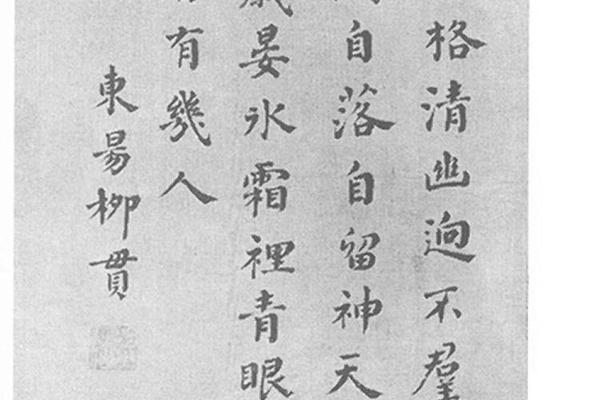 格清幽迥不羣
自落自留神天
歲晏氷霜裡青眼
有幾人
東昜柳貫